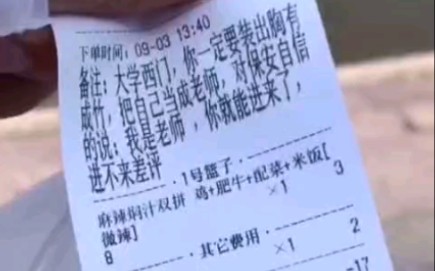 下单时间：09-03 13:40
备注：大学西门，你一定要装出胸有
成竹，把自己当成老师，对保安自信
的说：我是老师，你就能进来了，
进不来差评
1号篮子
麻辣焖汁双拼 鸡+肥牛+配菜+米饭[
微辣] ×1 3
8
其它费用
×1 2
17